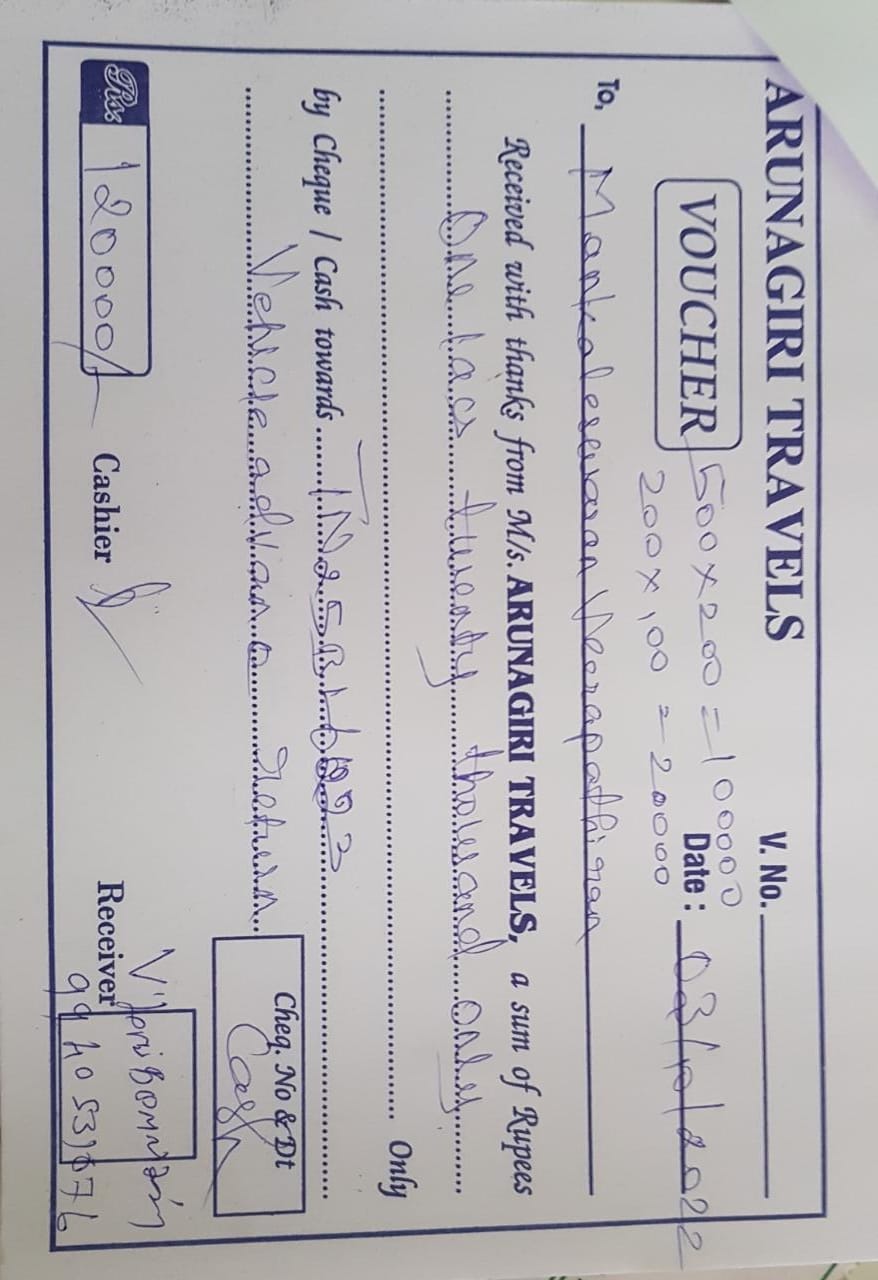 ARUNAGIRI TRAVELS
V. No.
VOUCHER
500 x 200 = 100000
200 x 100 = 20000
Date : 03/10/2022
To, Mankaleswaran Veerapathiran
Received with thanks from M/s. ARUNAGIRI TRAVELS, a sum of Rupees
One lacs twenty thousand only
Only
by Cheque / Cash towards
Vehicle advance return
Cheq. No & Dt
Cash
Rs. 120000/-
Cashier
Receiver